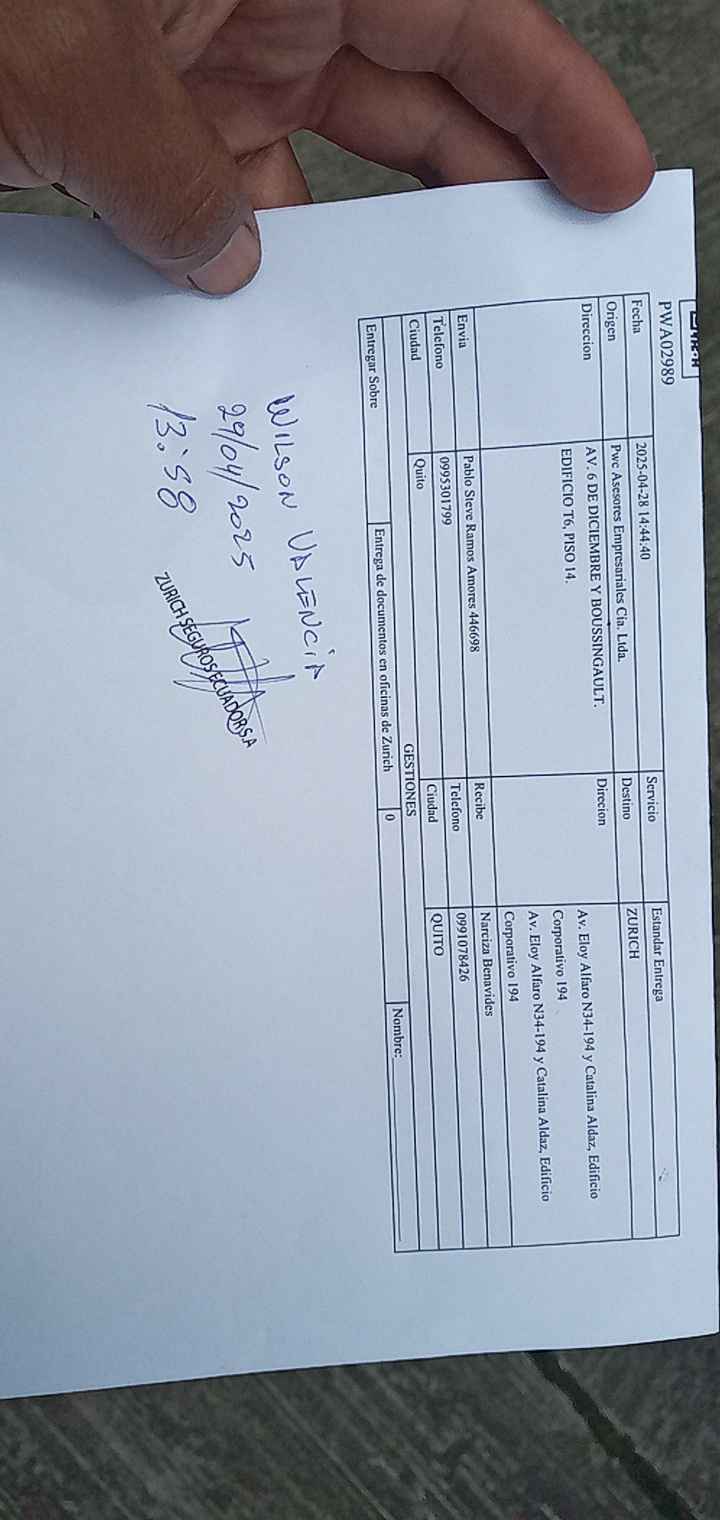 PWA02989
Fecha 2025-04-28 14:44:40 Servicio Estandar Entrega
Origen Pwc Asesores Empresariales Cia. Ltda. Destino ZURICH
Direccion AV. 6 DE DICIEMBRE Y BOUSSINGAULT. Direcion Av. Eloy Alfaro N34-194 y Catalina Aldaz, Edificio
EDIFICIO T6, PISO 14. Corporativo 194
Av. Eloy Alfaro N34-194 y Catalina Aldaz, Edificio
Corporativo 194
Envia Pablo Steve Ramos Amores 446698 Recibe Narciza Benavides
Telefono 0995301799 Telefono 0991078426
Ciudad Quito Ciudad QUITO
GESTIONES
Entregar Sobre Entrega de documentos en oficinas de Zurich 0 Nombre:
WILSON VALENCIA
29/04/2025
13:58
ZURICH SEGUROS ECUADOR S.A